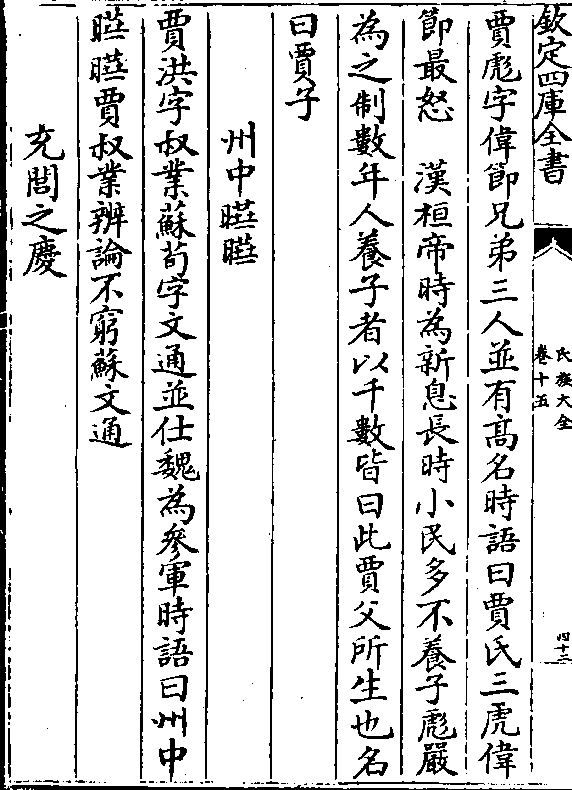 欽定四庫全書
氏族大全
卷十五
四十三
賈彪字偉節兄弟三人並有高名時語曰賈氏三虎偉
節最怒　漢桓帝時為新息長時小民多不養子彪嚴
為之制數年人養子者以千數皆曰此賈父所生也名
曰賈子
州中曀曀
賈洪字叔業蘇苟字文通並仕魏為參軍時語曰州中
曀曀賈叔業辨論不窮蘇文通
充閭之慶